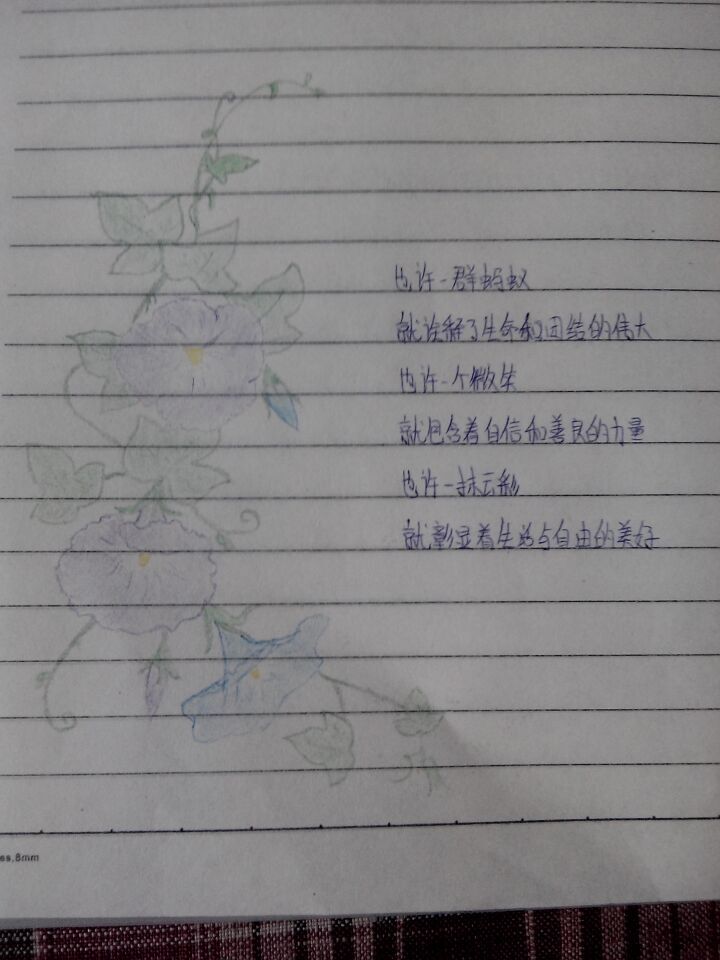 也许一群蚂蚁
就诠释了生命和团结的伟大
也许一个微笑
就包含着自信和善良的力量
也许一抹云彩
就彰显着生活与自由的美好
es,8mm